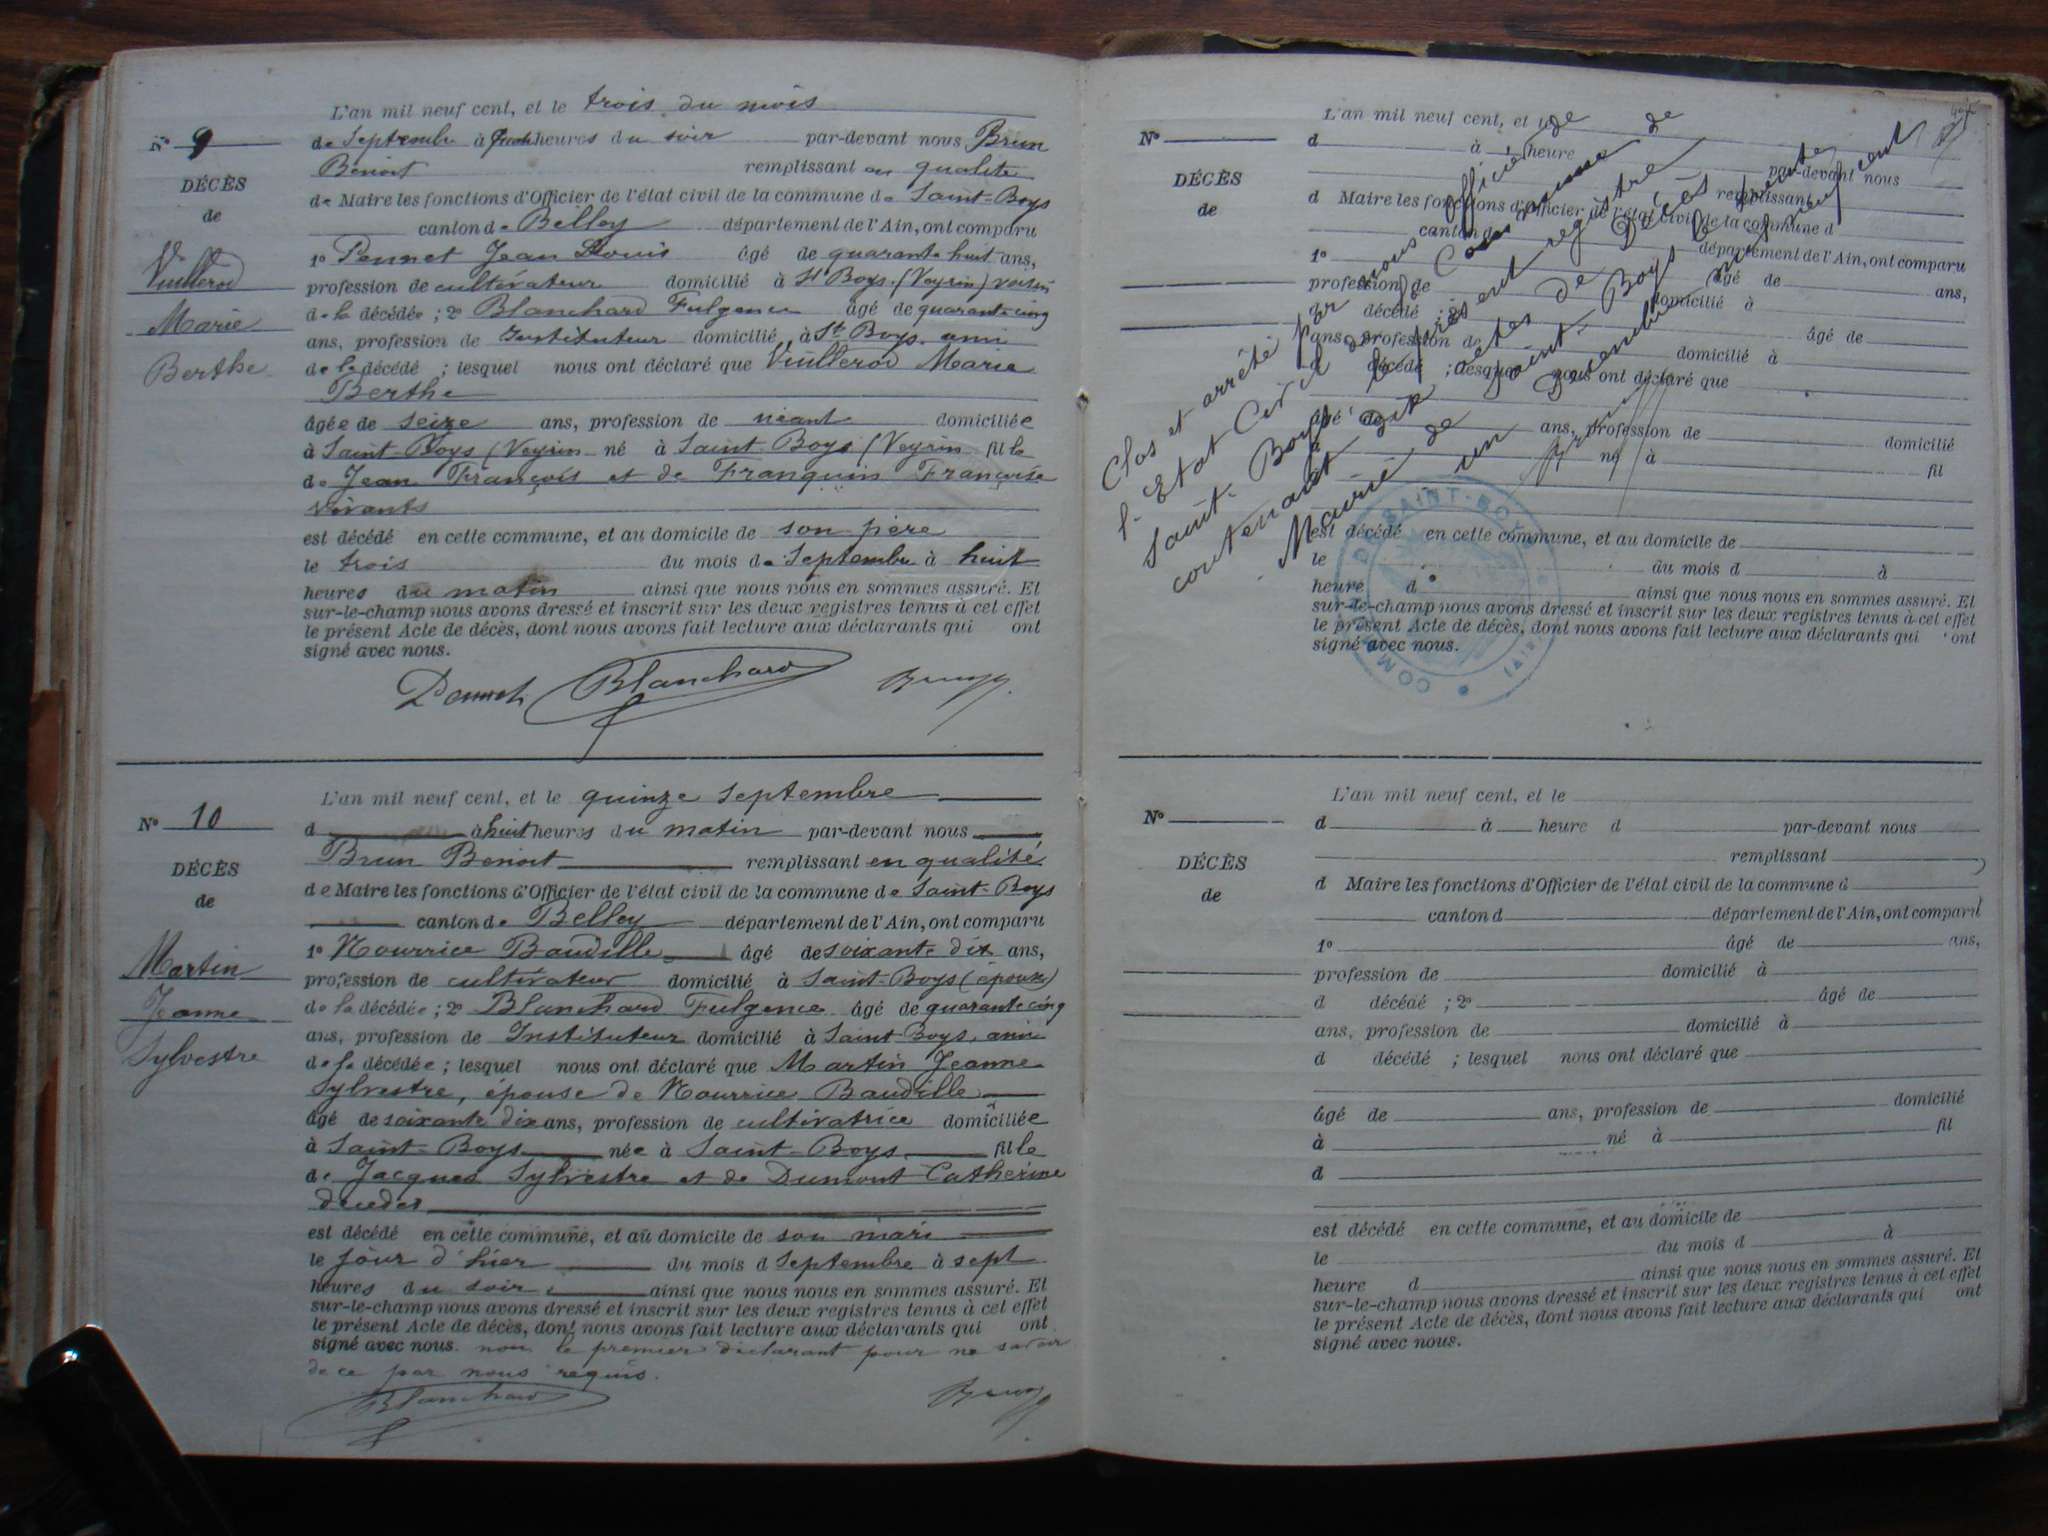 L'an mil neuf cent, et le trois du mois
N° 9
de Septembre à heures du soir par-devant nous Brun
Benoit remplissant en qualité
DÉCÈS
de Maire les fonctions d'Officier de l'état civil de la commune de Saint-Boys
de
canton de Belley département de l'Ain, ont comparu
1° Pennet Jean Louis âgé de quarante huit ans,
Vuillerod
profession de cultivateur domicilié à St Boys (Veyrin) voisin
Marie
de la décédée ; 2° Blanchard Fulgence âgé de quarante cinq
ans, profession de Instituteur domicilié à St Boys ami
Berthe
de la décédé ; lesquel nous ont déclaré que Vuillerod Marie
Berthe
âgée de seize ans, profession de néant domiciliée
à Saint-Boys (Veyrin né à Saint-Boys (Veyrin fille
de Jean François et de Franquin Françoise
vivants
est décédé en cette commune, et au domicile de son père
le trois du mois de Septembre à huit
heures du matin ainsi que nous nous en sommes assuré. Et
sur-le-champ nous avons dressé et inscrit sur les deux registres tenus à cet effet
le présent Acte de décès, dont nous avons fait lecture aux déclarants qui ont
signé avec nous.
Pennet Blanchard Brun
L'an mil neuf cent, et le quinze septembre
N° 10
d à huit heures du matin par-devant nous
Brun Benoit remplissant en qualité
DÉCÈS
de Maire les fonctions d'Officier de l'état civil de la commune de Saint-Boys
de
canton de Belley département de l'Ain, ont comparu
1° Nourrice Baudille âgé de soixante dix ans,
Martin
profession de cultivateur domicilié à Saint-Boys (époux)
Jeanne
de la décédée ; 2° Blanchard Fulgence âgé de quarante cinq
ans, profession de Instituteur domicilié à Saint-Boys, ami
Sylvestre
de la décédée ; lesquel nous ont déclaré que Martin Jeanne
Sylvestre, épouse de Nourrice Baudille
âgé de soixante dix ans, profession de cultivatrice domiciliée
à Saint-Boys née à Saint-Boys fille
de Jacques Sylvestre et de Dumont Catherine
décédés
est décédé en cette commune, et au domicile de son mari
le jour d'hier du mois d Septembre à sept
heures du soir ainsi que nous nous en sommes assuré. Et
sur-le-champ nous avons dressé et inscrit sur les deux registres tenus à cet effet
le présent Acte de décès, dont nous avons fait lecture aux déclarants qui ont
signé avec nous. non le premier déclarant pour ne savoir
de ce par nous requis.
Blanchard Brun
L'an mil neuf cent, et le
N°
d à heure par-devant nous
remplissant
DÉCÈS
d Maire les fonctions d'Officier de l'état civil de la commune d
de
canton d département de l'Ain, ont comparu
1° âgé de ans,
profession de domicilié à
d décédé ; 2° âgé de
ans, profession de domicilié à
d décédé ; lesquel nous ont déclaré que
âgé de ans, profession de domicilié
à né à fil
est décédé en cette commune, et au domicile de
le du mois d à
heure d ainsi que nous nous en sommes assuré. Et
sur-le-champ nous avons dressé et inscrit sur les deux registres tenus à cet effet
le présent Acte de décès, dont nous avons fait lecture aux déclarants qui ont
signé avec nous.
Clos et arrêté par nous officier de
l'Etat Civil de la Commune de
Saint-Boys le présent registre
contenant dix actes de Décès
Mairie de Saint-Boys le trente
un Décembre mil neuf cent
Brun
COMMUNE DE SAINT-BOYS (AIN)
L'an mil neuf cent, et le
N°
d à heure d par-devant nous
remplissant
DÉCÈS
d Maire les fonctions d'Officier de l'état civil de la commune d
de
canton d département de l'Ain, ont comparu
1° âgé de ans,
profession de domicilié à
d décédé ; 2° âgé de
ans, profession de domicilié à
d décédé ; lesquel nous ont déclaré que
âgé de ans, profession de domicilié
à né à fil
d
est décédé en cette commune, et au domicile de
le du mois d à
heure d ainsi que nous nous en sommes assuré. Et
sur-le-champ nous avons dressé et inscrit sur les deux registres tenus à cet effet
le présent Acte de décès, dont nous avons fait lecture aux déclarants qui ont
signé avec nous.